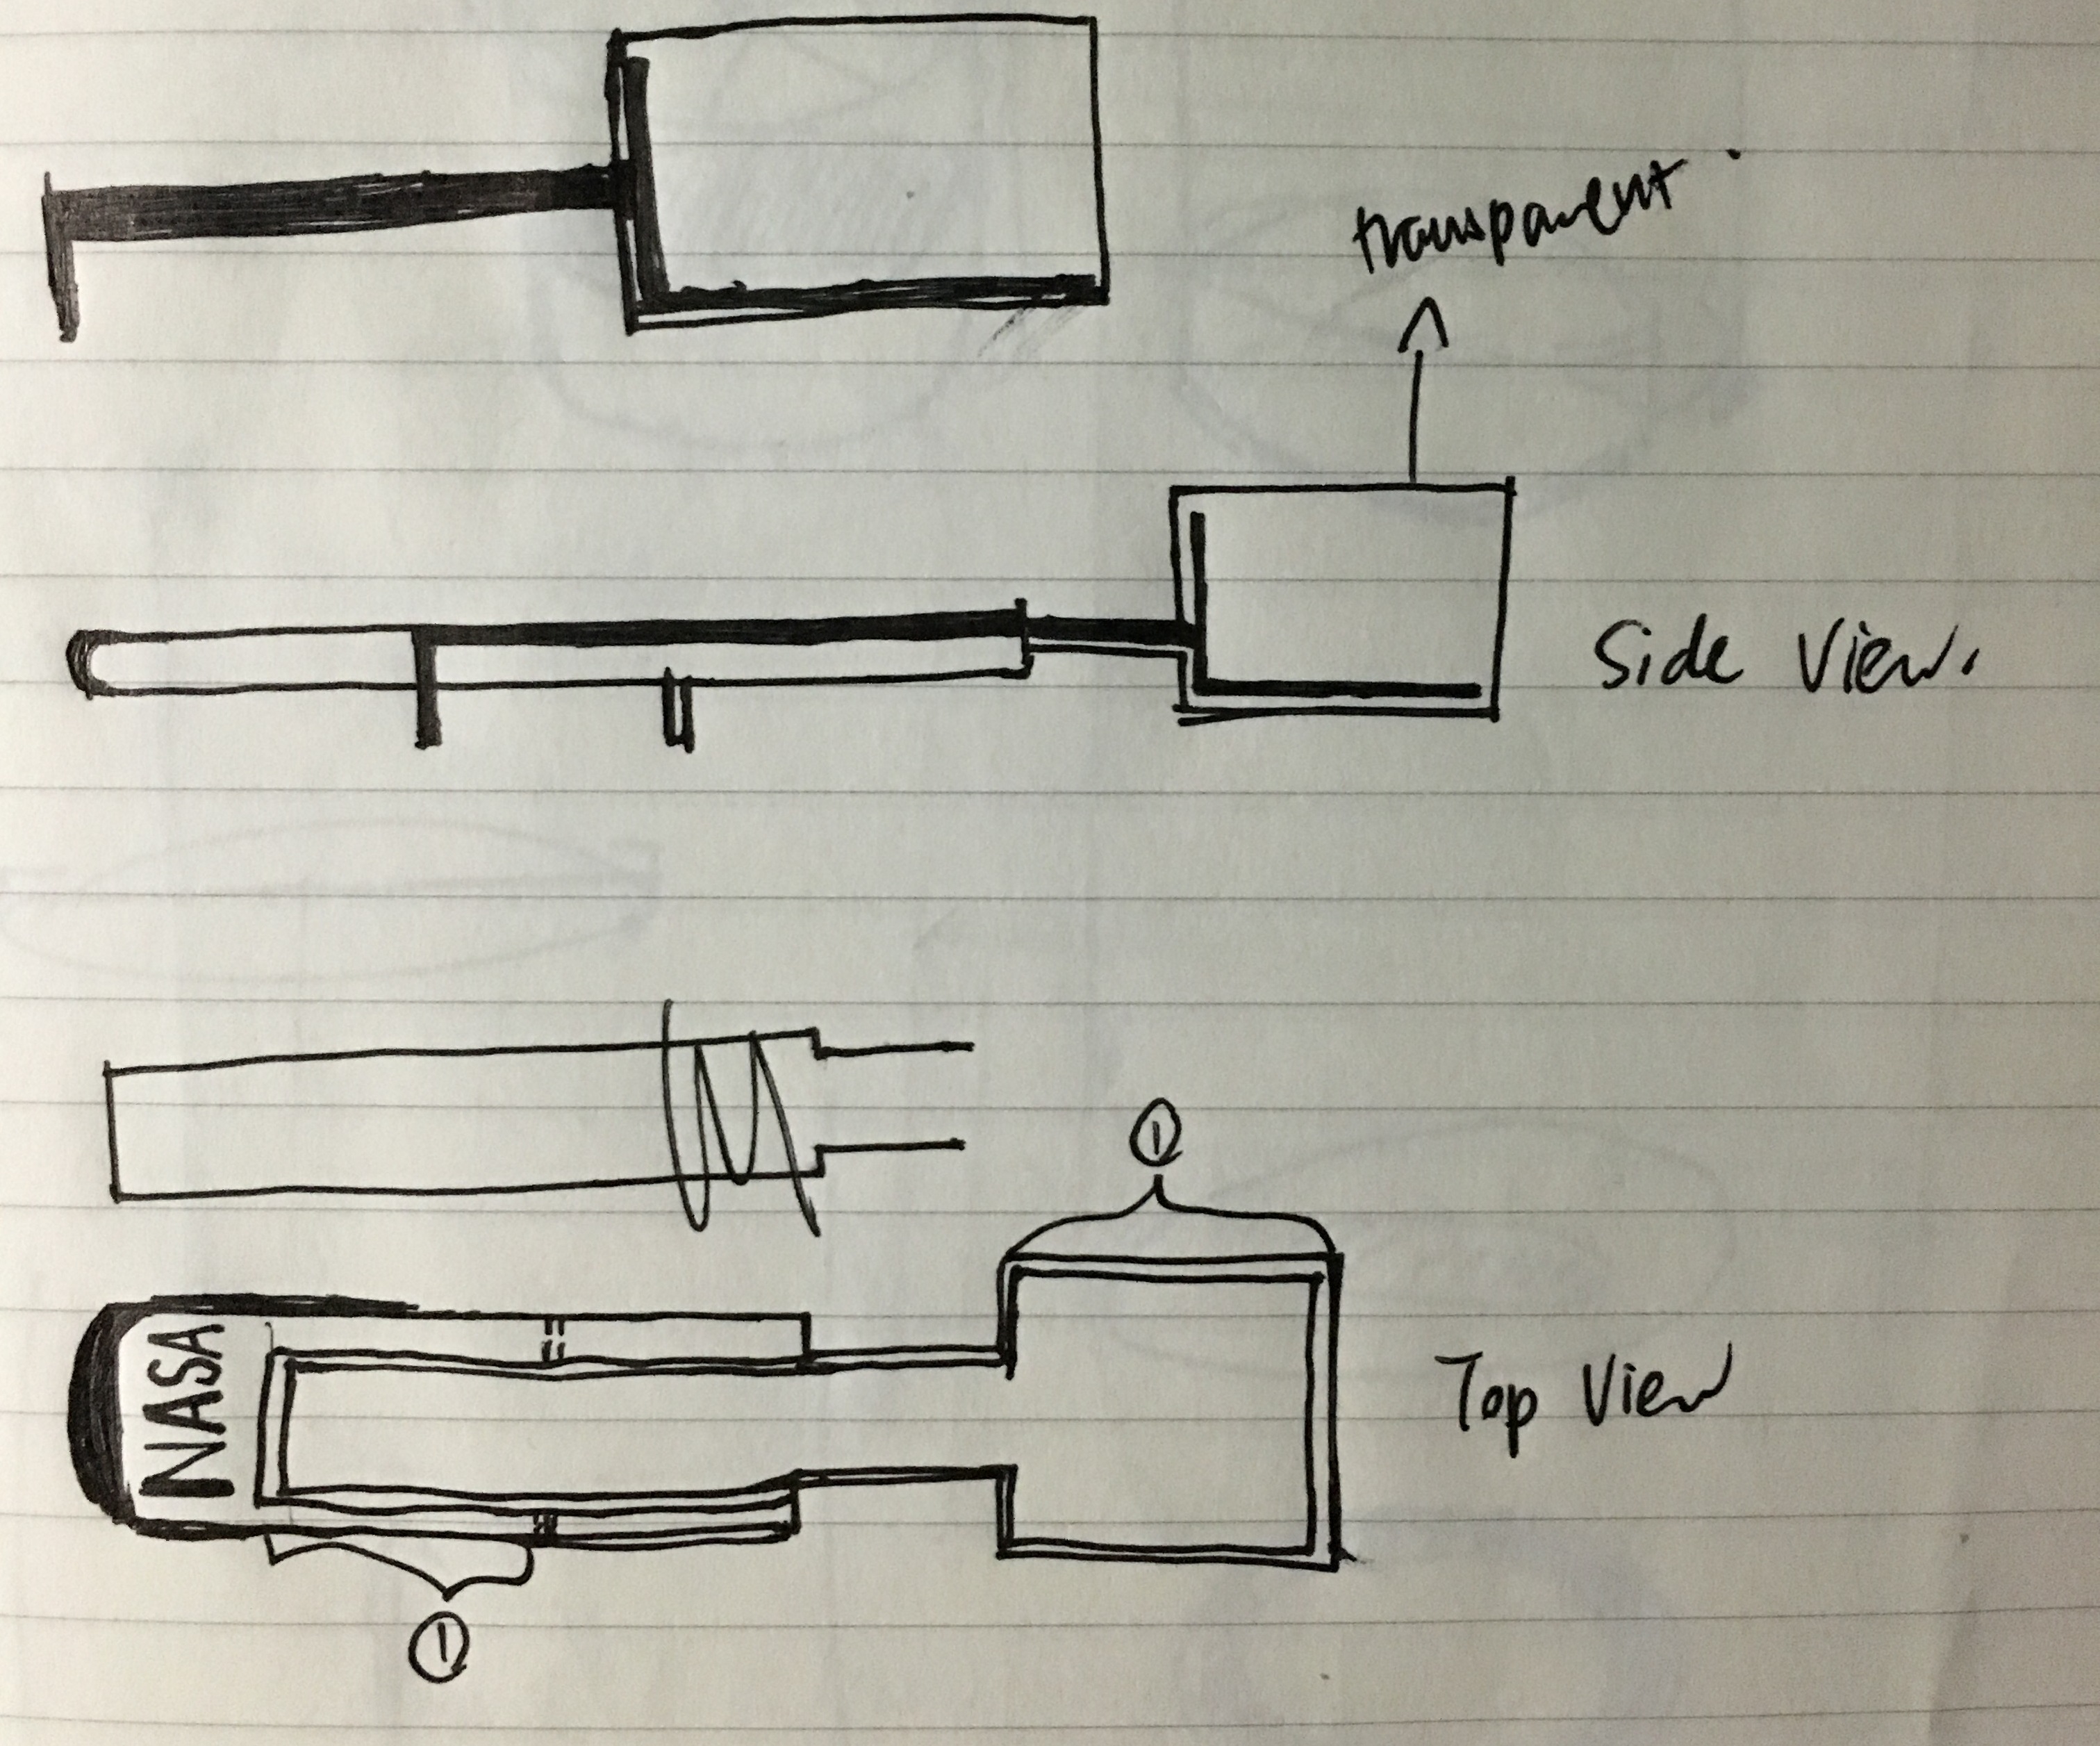 transparent
Side View.
①
NASA
Top View
①